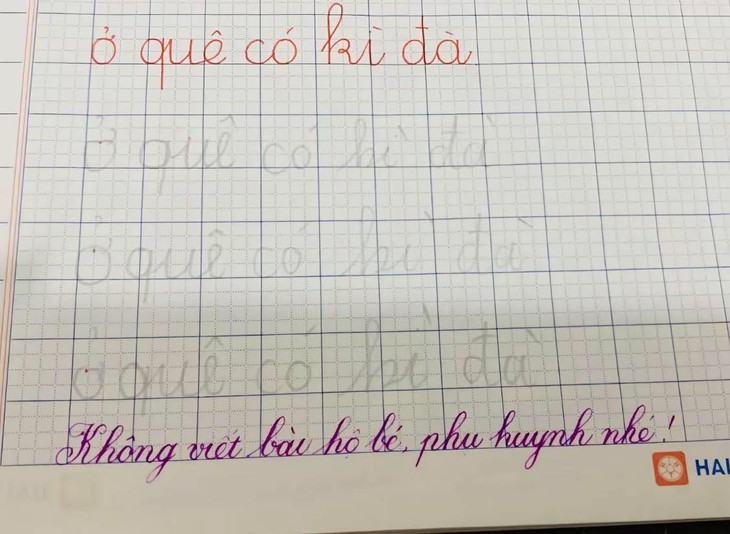 ở quê có kì đà
ở quê có kì đà
ở quê có kì đà
ở quê có kì đà
Không viết bài hộ bé, phụ huynh nhé!
HAI